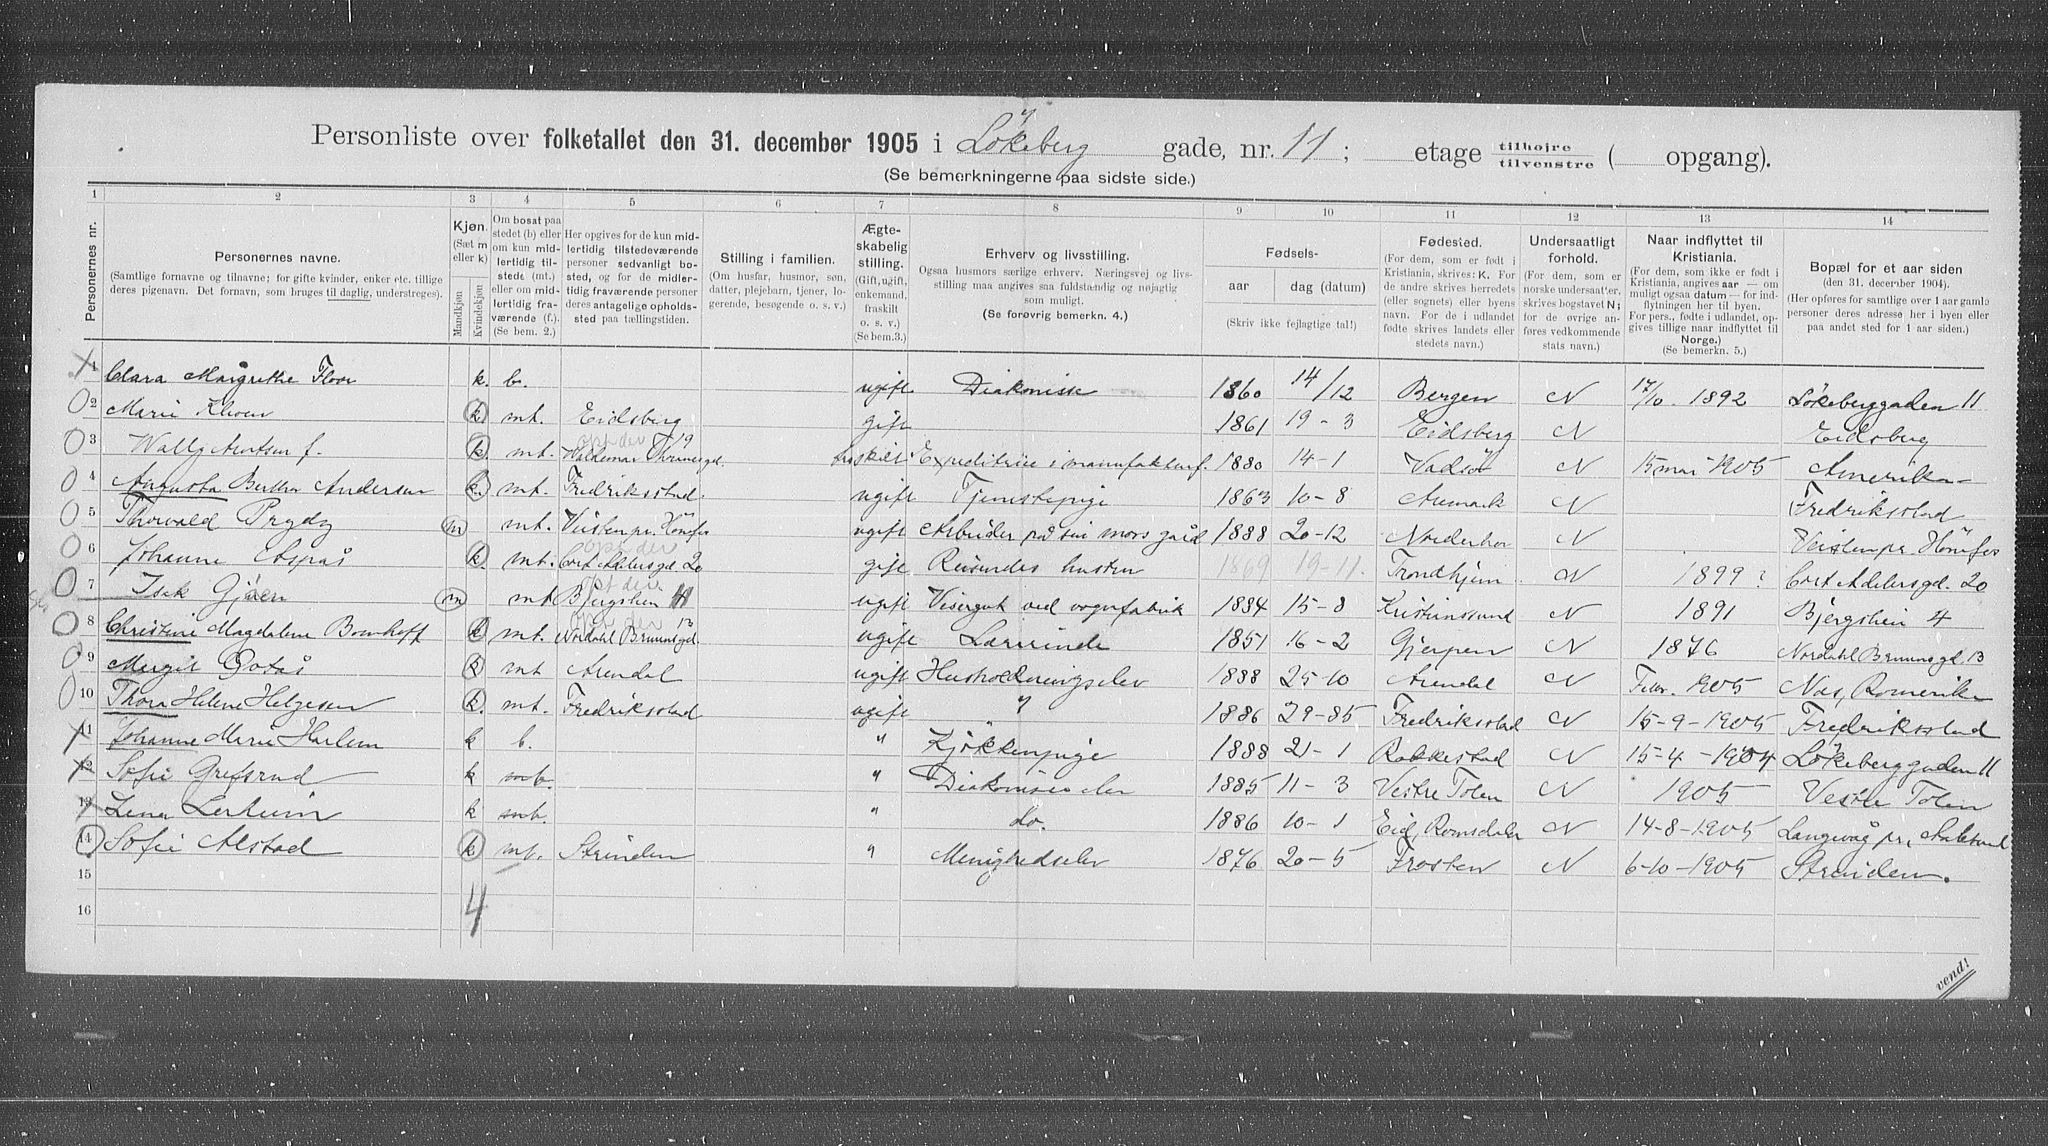 Personliste over folketallet den 31. december 1905 i Løkeberg gade, nr. 11; etage tilhøjre tilvenstre ( opgang).
(Se bemerkningerne paa sidste side.)
1 2 3 4 5 6 7 8 9 10 11 12 13 14
Personernes nr.
Personernes navne.
(Samtlige fornavne og tilnavne; for gifte kvinder, enker etc. tillige deres pigenavn. Det fornavn, som bruges til daglig, understreges).
Kjøn.
(Sæt m eller k)
Mandkjøn
Kvindekjøn
Om bosat paa stedet (b) eller om kun midlertidig tilstede (mt.) eller om midlertidig fraværende (f.).
(Se bem. 2.)
Her opgives for de kun midlertidig tilstedeværende personer sedvanligt bosted, og for de midlertidig fraværende personer deres antagelige opholdssted paa tællingstiden.
Stilling i familien.
(Om husfar, husmor, søn, datter, plejebarn, tjener, logerende, besøgende o. s. v.)
Ægteskabelig stilling.
(Gift, ugift, enkemand, fraskilt o. s. v.)
(Se bem.3.)
Erhverv og livsstilling.
Ogsaa husmors særlige erhverv. Næringsvej og livsstilling maa angives saa fuldstændig og nøjagtig som muligt.
(Se forøvrig bemerkn. 4.)
Fødsels-
aar
dag (datum)
(Skriv ikke fejlagtige tal!)
Fødested.
(For dem, som er født i Kristiania, skrives: K. For de andre skrives herredets (eller sognets) eller byens navn. For de i udlandet fødte skrives landets eller stedets navn.)
Undersaatligt forhold.
(For dem, som er norske undersaatter, skrives bogstavet N; for de øvrige anføres vedkommende stats navn.)
Naar indflyttet til Kristiania.
(For dem, som ikke er født i Kristiania, angives aar — om muligt ogsaa datum — for indflytningen her til byen. For pers., fødte i udlandet, opgives tillige naar indflyttet til Norge.)
(Se bemerkn. 5.)
Bopæl for et aar siden
(den 31. december 1904).
(Her opføres for samtlige over 1 aar gamle personer deres adresse her i byen eller paa andet sted for 1 aar siden.)
1 Clara Margrethe k. b. ugift Diakonisse 1860 14/12 Bergen N 17/10 1892 Løkeberggaden 11
2 Marie k mt. Eidsberg gift 1861 19-3 Eidsberg N Eidsberg
3 Wally f. k. mt. Waldemar Thranesgd. 19 fraskilt 1880 14-1 Vadsø N 15 mai 1905 Amerika
4 Augusta Berthe Andersen k. mt. Fredriksstad. ugift Tjenestepige 1863 10-8 Aremark N Fredriksstad
5 Thorvald Prydz m mt. ugift Arbeider paa sin mors gård 1888 20-12 Norderhov N
6 Johanne Aspås k. mt. Cort Adelersgd. 20 gift Reisendes hustru 1869 19-11. Trondhjem N 1899? Cort Adelersgd. 20
7 Isak Gjøen m mt Bjergslien ugift Visergut ved vognfabrik 1884 15-8 Kristiansund N 1891 Bjergslien 4
8 Christine Magdalene k mt. Nordahl Brunsgd 13 ugift Lærerinde 1851 16-2 Gjerpen N 1876 Nordahl Brunsgd. 13
9 Margit k mt Arendal ugift Husholdningselev 1888 25-10 Arendal N Febr. 1905 Nes, Romerike
10 Thora Helene Helgesen k. mt. Fredriksstad ugift " 1886 29-85 Fredriksstad N 15-9-1905 Fredriksstad
11 Johanne Marie Harlem k b. " Kjøkkenpige 1888 21-1 Rakkestad N 15-4-1904 Løkeberggaden 11
12 Sofie Grefsrud k b. " Diakonisseelev 1885 11-3 Vestre Toten N 1905 Vestre Toten
13 k b. " do. 1886 10-1 Eid, Romsdalen N 14-8-1905 Langevåg pr. Aalesund
14 Sofie Alstad k mt. Strinden " Menighedselev 1876 20-5 Frosten N 6-10-1905 Strinden.
15
16
4
vend!